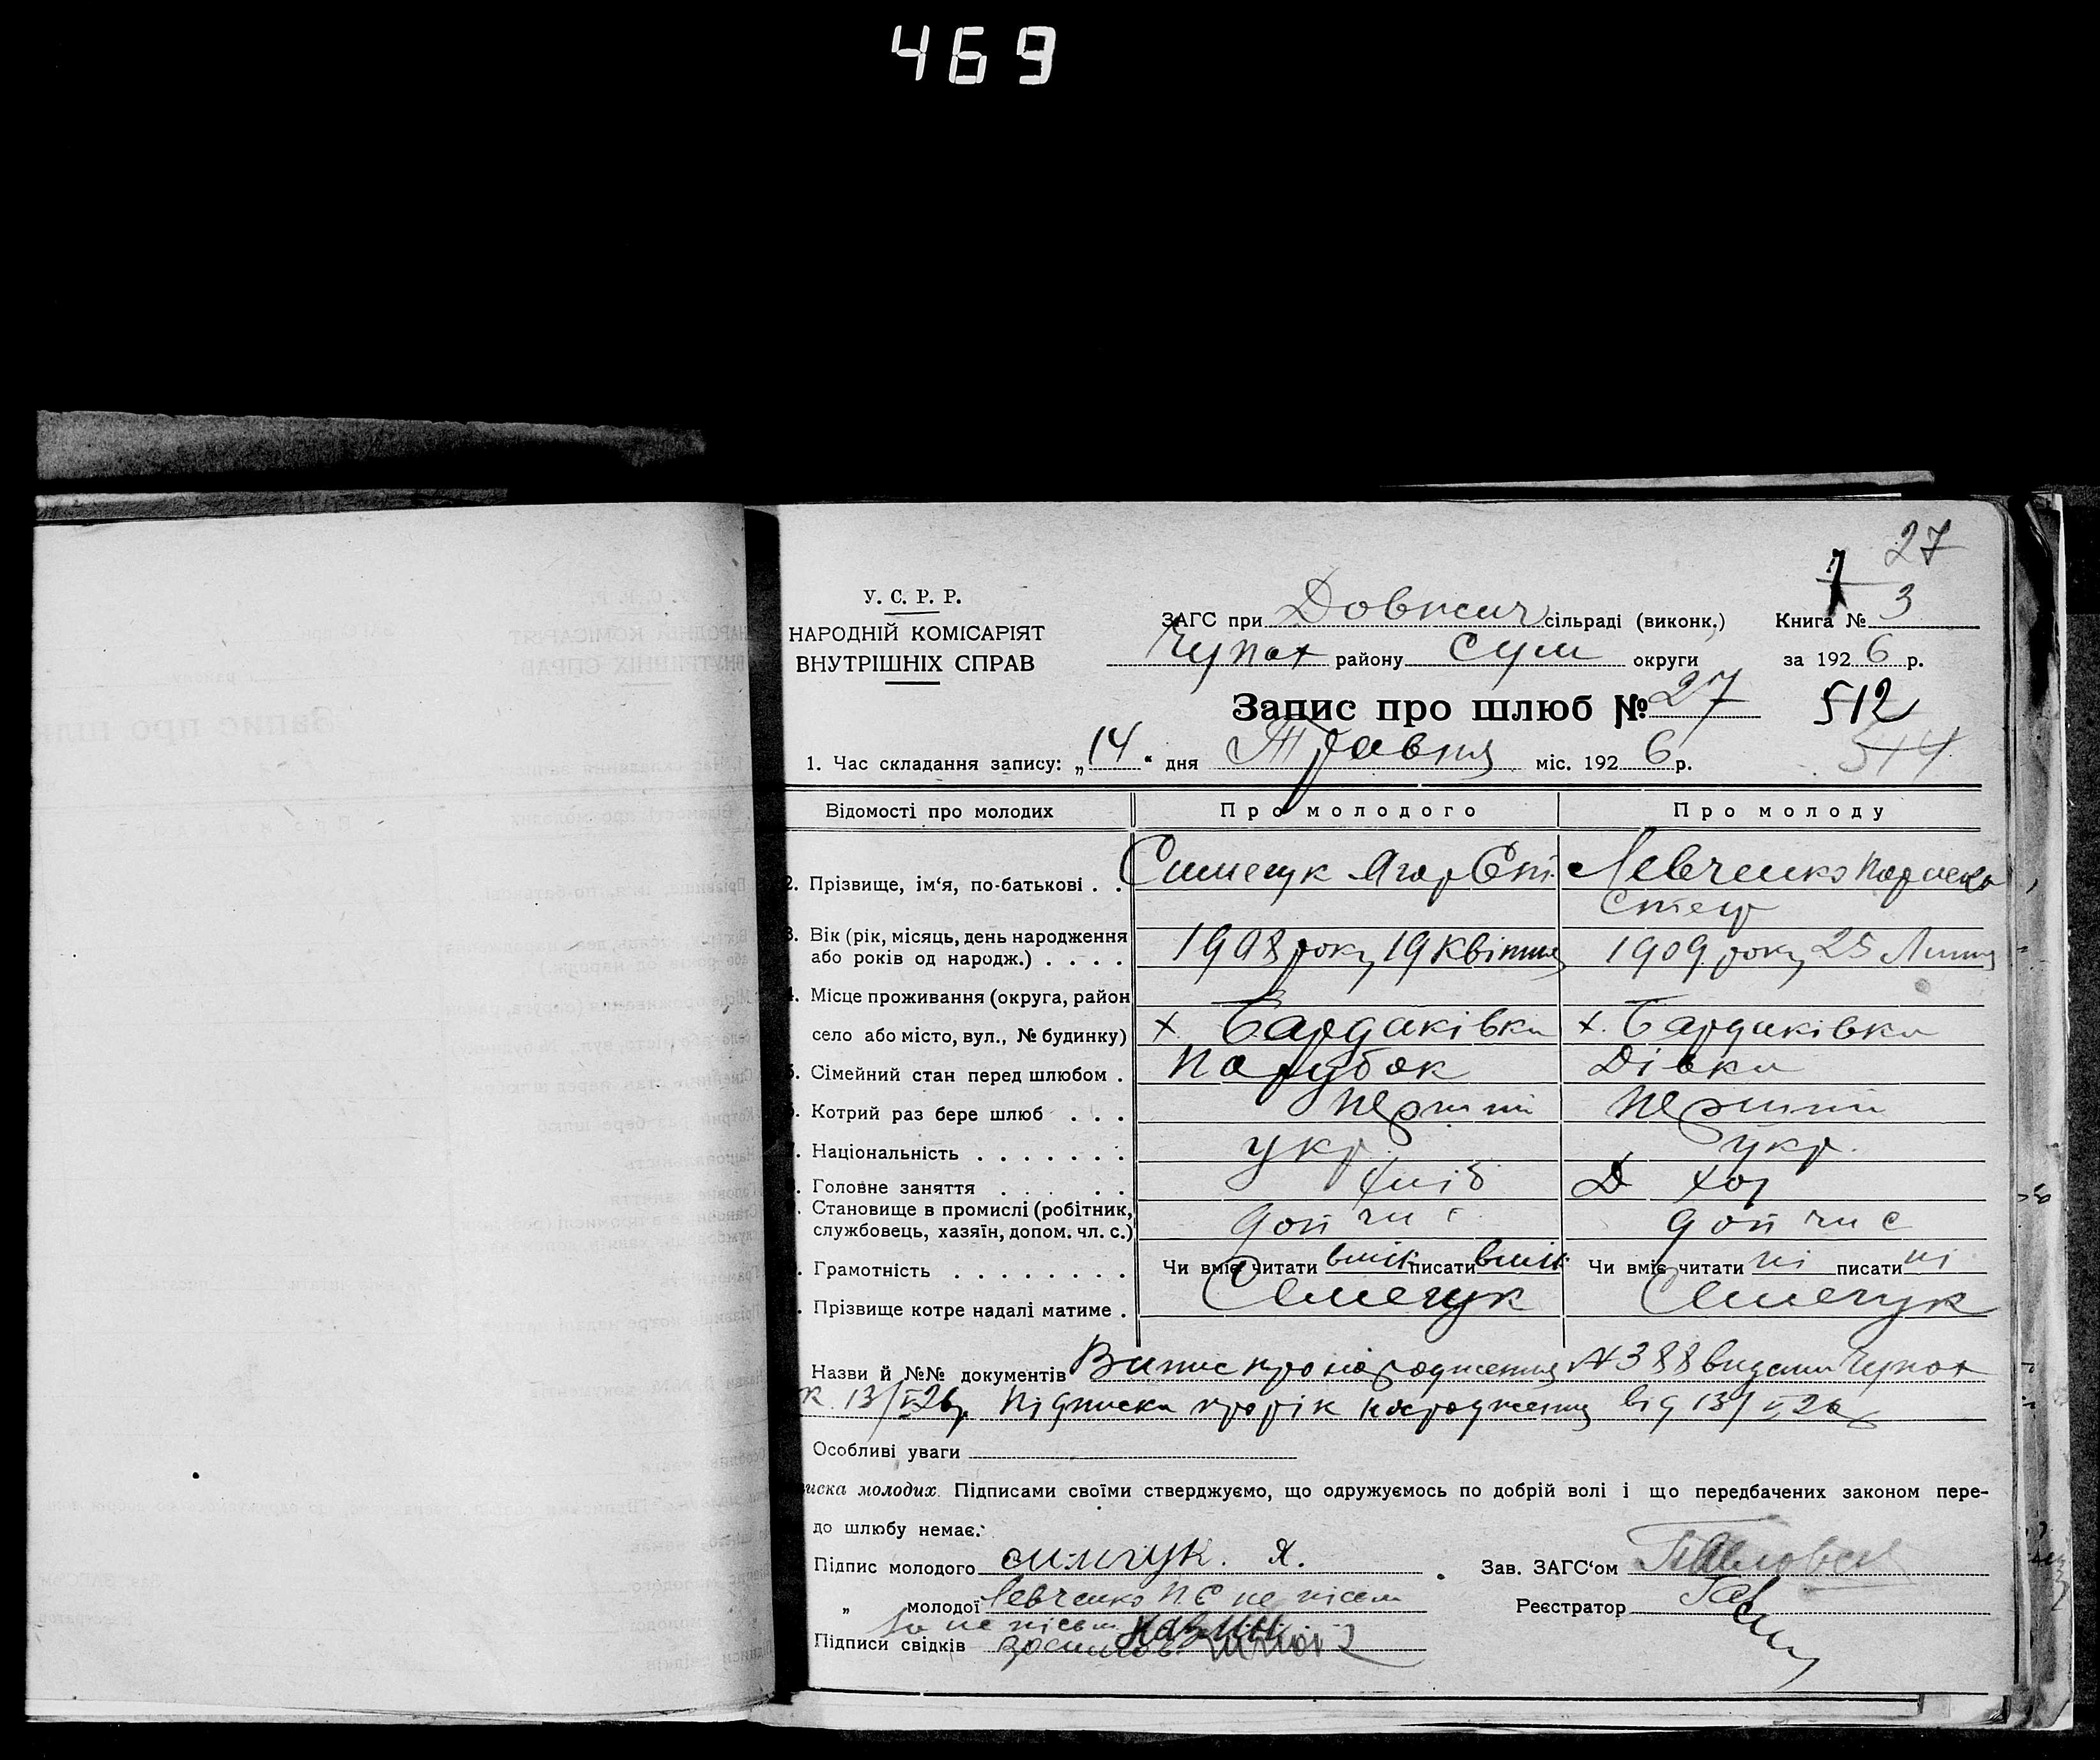 469
27
7
У. С. Р. Р.
НАРОДНІЙ КОМІСАРІЯТ
ВНУТРІШНІХ СПРАВ
ЗАГС при Довжич сільраді (виконк.) Книга № 3
Чупах району Сум округи за 1926 р.
Запис про шлюб № 27 512
514
1. Час складання запису: „14" дня Травня міс. 1926 р.
Відомості про молодих Про молодого Про молоду
2. Прізвище, ім'я, по-батькові . . Ягор Левченко
3. Вік (рік, місяць, день народження 1908 року 19 Квітня 1909 року 25 Липня
або років од народж.) . . . .
4. Місце проживання (округа, район
село або місто, вул., № будинку) х. Бардаківка х. Бардаківка
5. Сімейний стан перед шлюбом . Парубок Дівка
6. Котрий раз бере шлюб . . . перший перший
7. Національність . . . . . . . укр. укр.
. Головне заняття . . . . . хліб Д
. Становище в промислі (робітник, доп чл с доп чл с
службовець, хазяїн, допом. чл. с.)
. Грамотність . . . . . . . . Чи вміє читати вміє писати вміє Чи вміє читати ні писати ні
. Прізвище котре надалі матиме .
Назви й №№ документів Випис про народження № 388 видани Чупах
к 13/V 26р. Підписка про рік народження від 13/V 26
Особливі уваги
иска молодих. Підписами своїми стверджуємо, що одружуємось по добрій волі і що передбачених законом пере-
до шлюбу немає.
Підпис молодого Я. Зав. ЗАГС'ом
„ молодої Левченко П. С не пісем Реєстратор
за не пісьм
Підписи свідків